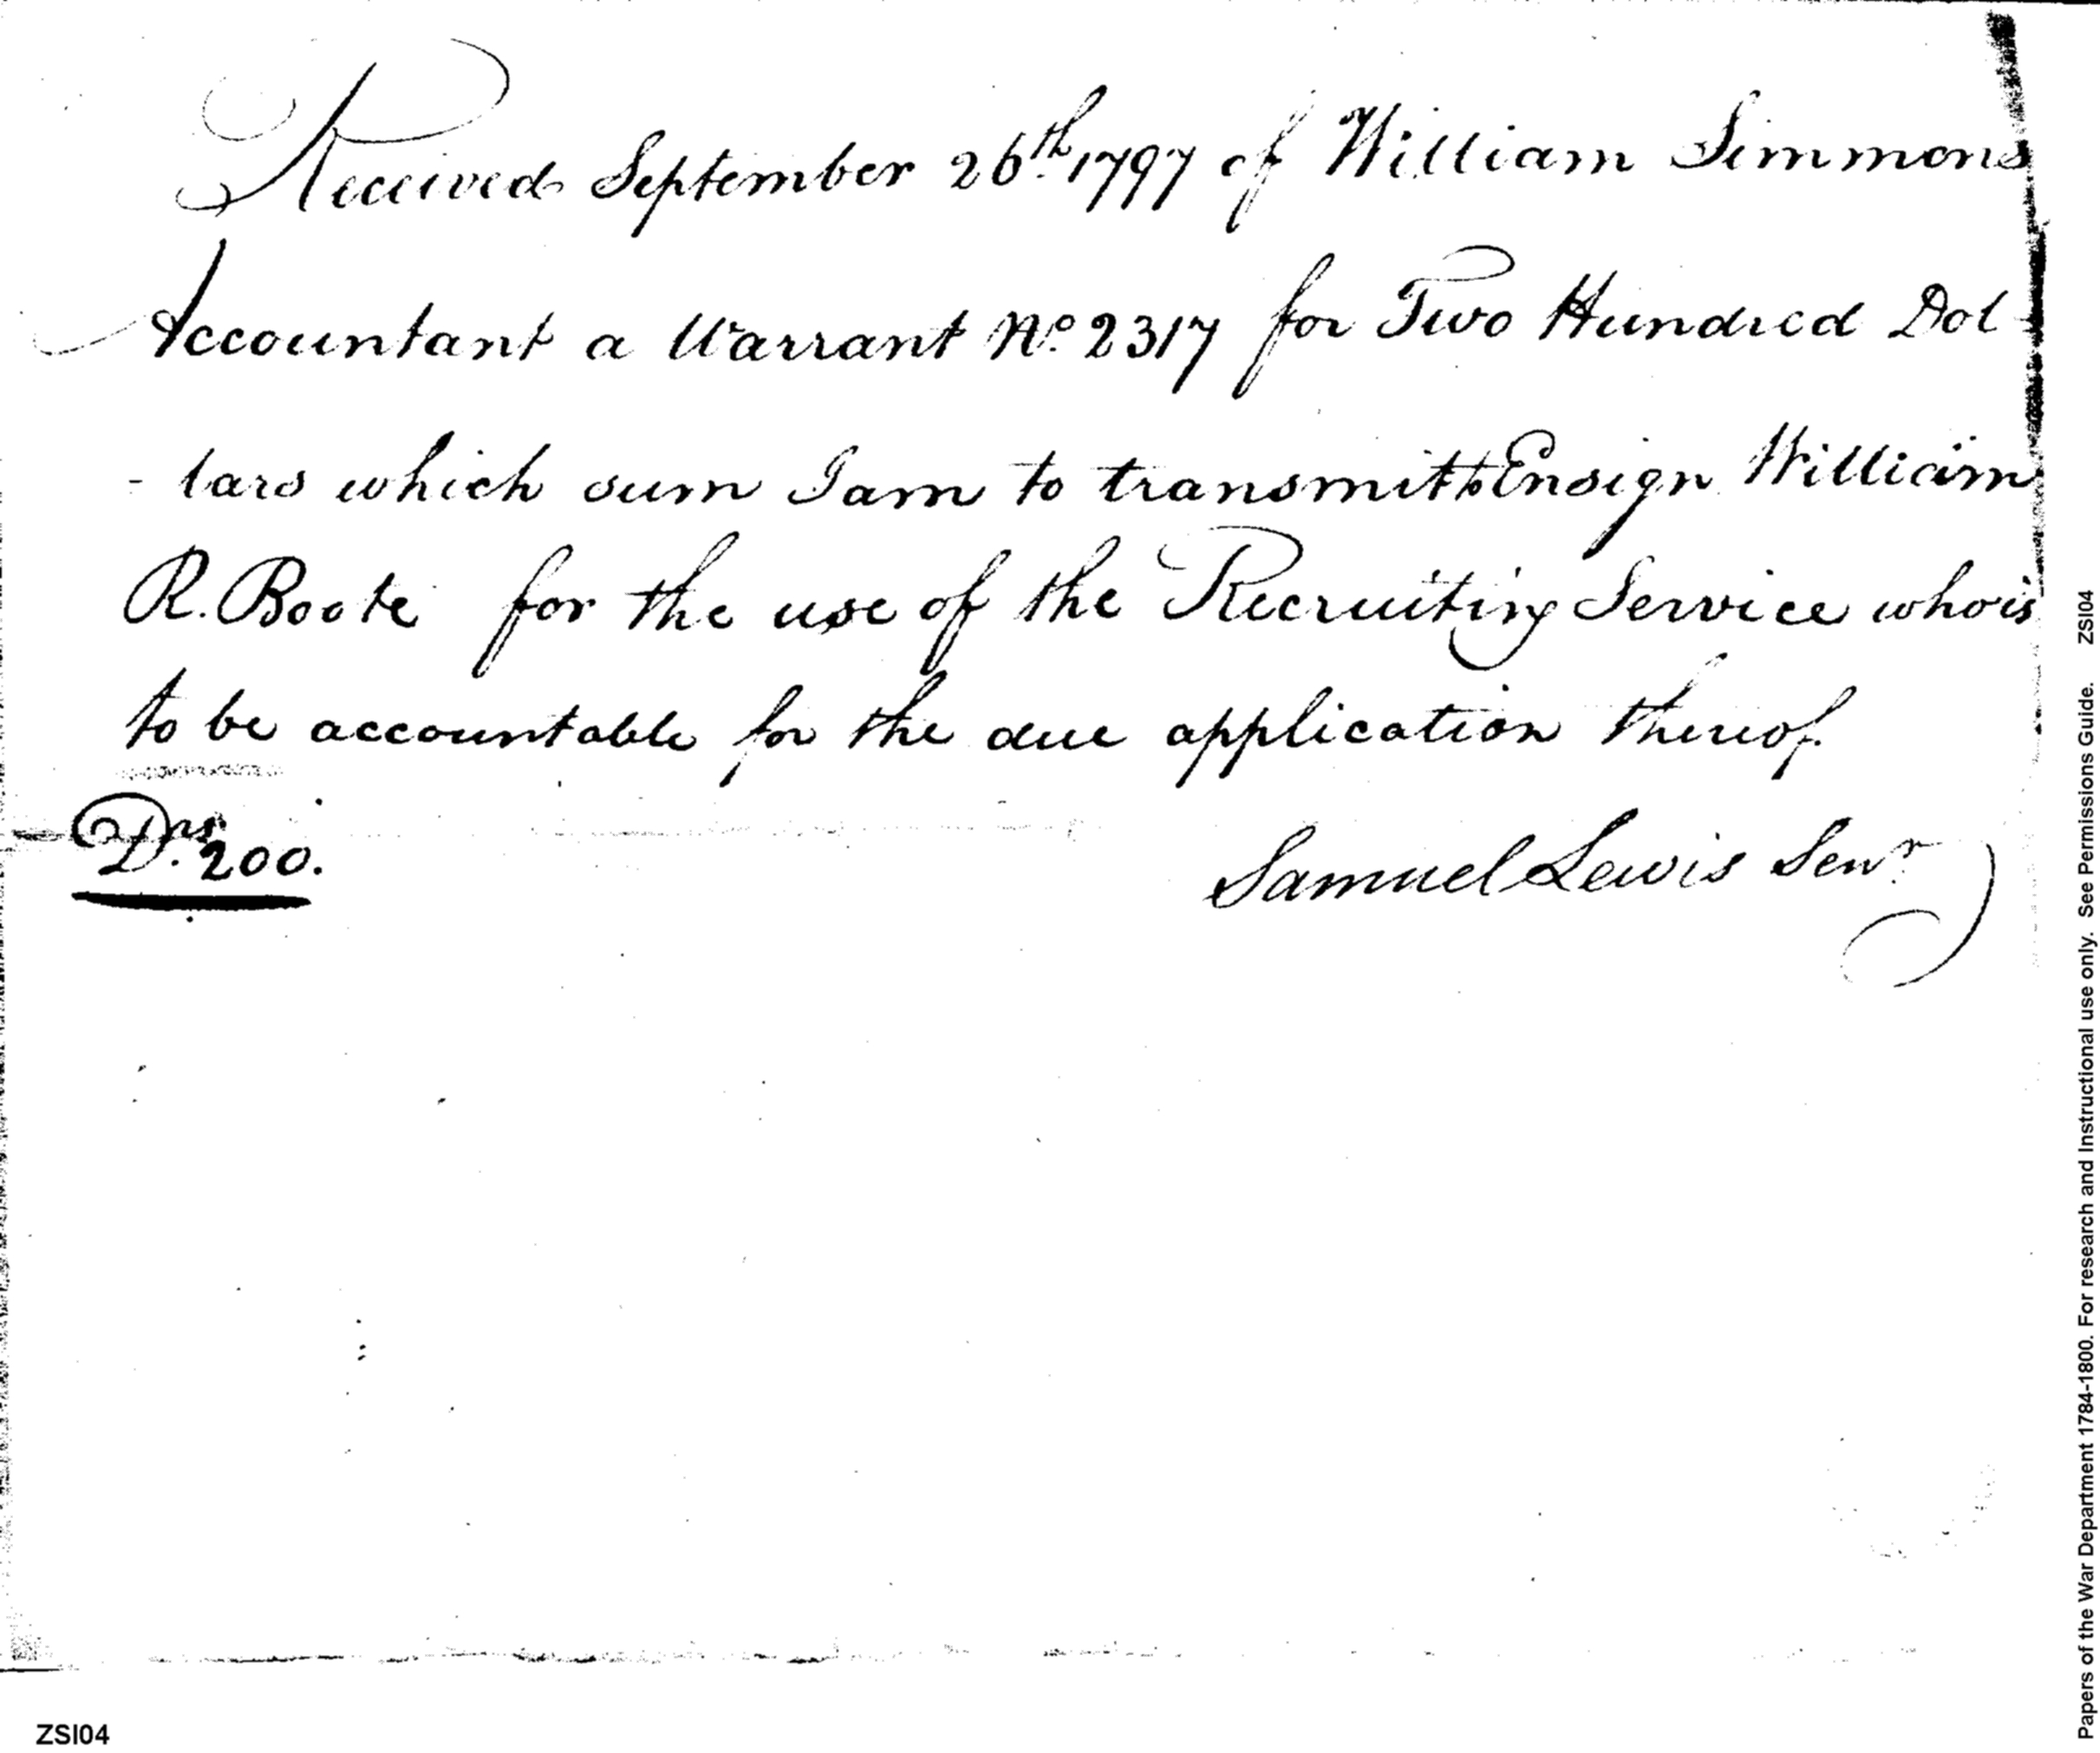 Received September 26th. 1797 of William Simmons
Accountant a Warrant No. 2317 for Two Hundred Dol
- lars which sum I am to transmit to Ensign William
R. Boote for the use of the Recruiting Service who is
to be accountable for the due application thereof.
Drs. 200.
Samuel Lewis Senr.
ZSI04
Papers of the War Department 1784-1800. For research and Instructional use only. See Permissions Guide. ZSI04